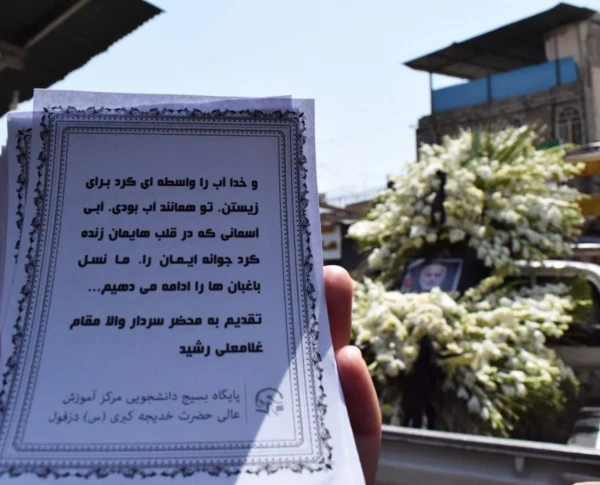 و خدا آب را واسطه ای کرد برای
زیستن. تو همانند آب بودی. آبی
آسمانی که در قلب هایمان زنده
کرد جوانه ایمان را. ما نسل
باغبان ها را ادامه می دهیم...
تقدیم به محضر سردار والا مقام
غلامعلی رشید
پایگاه بسیج دانشجویی مرکز آموزش
عالی حضرت خدیجه کبری (س) دزفول